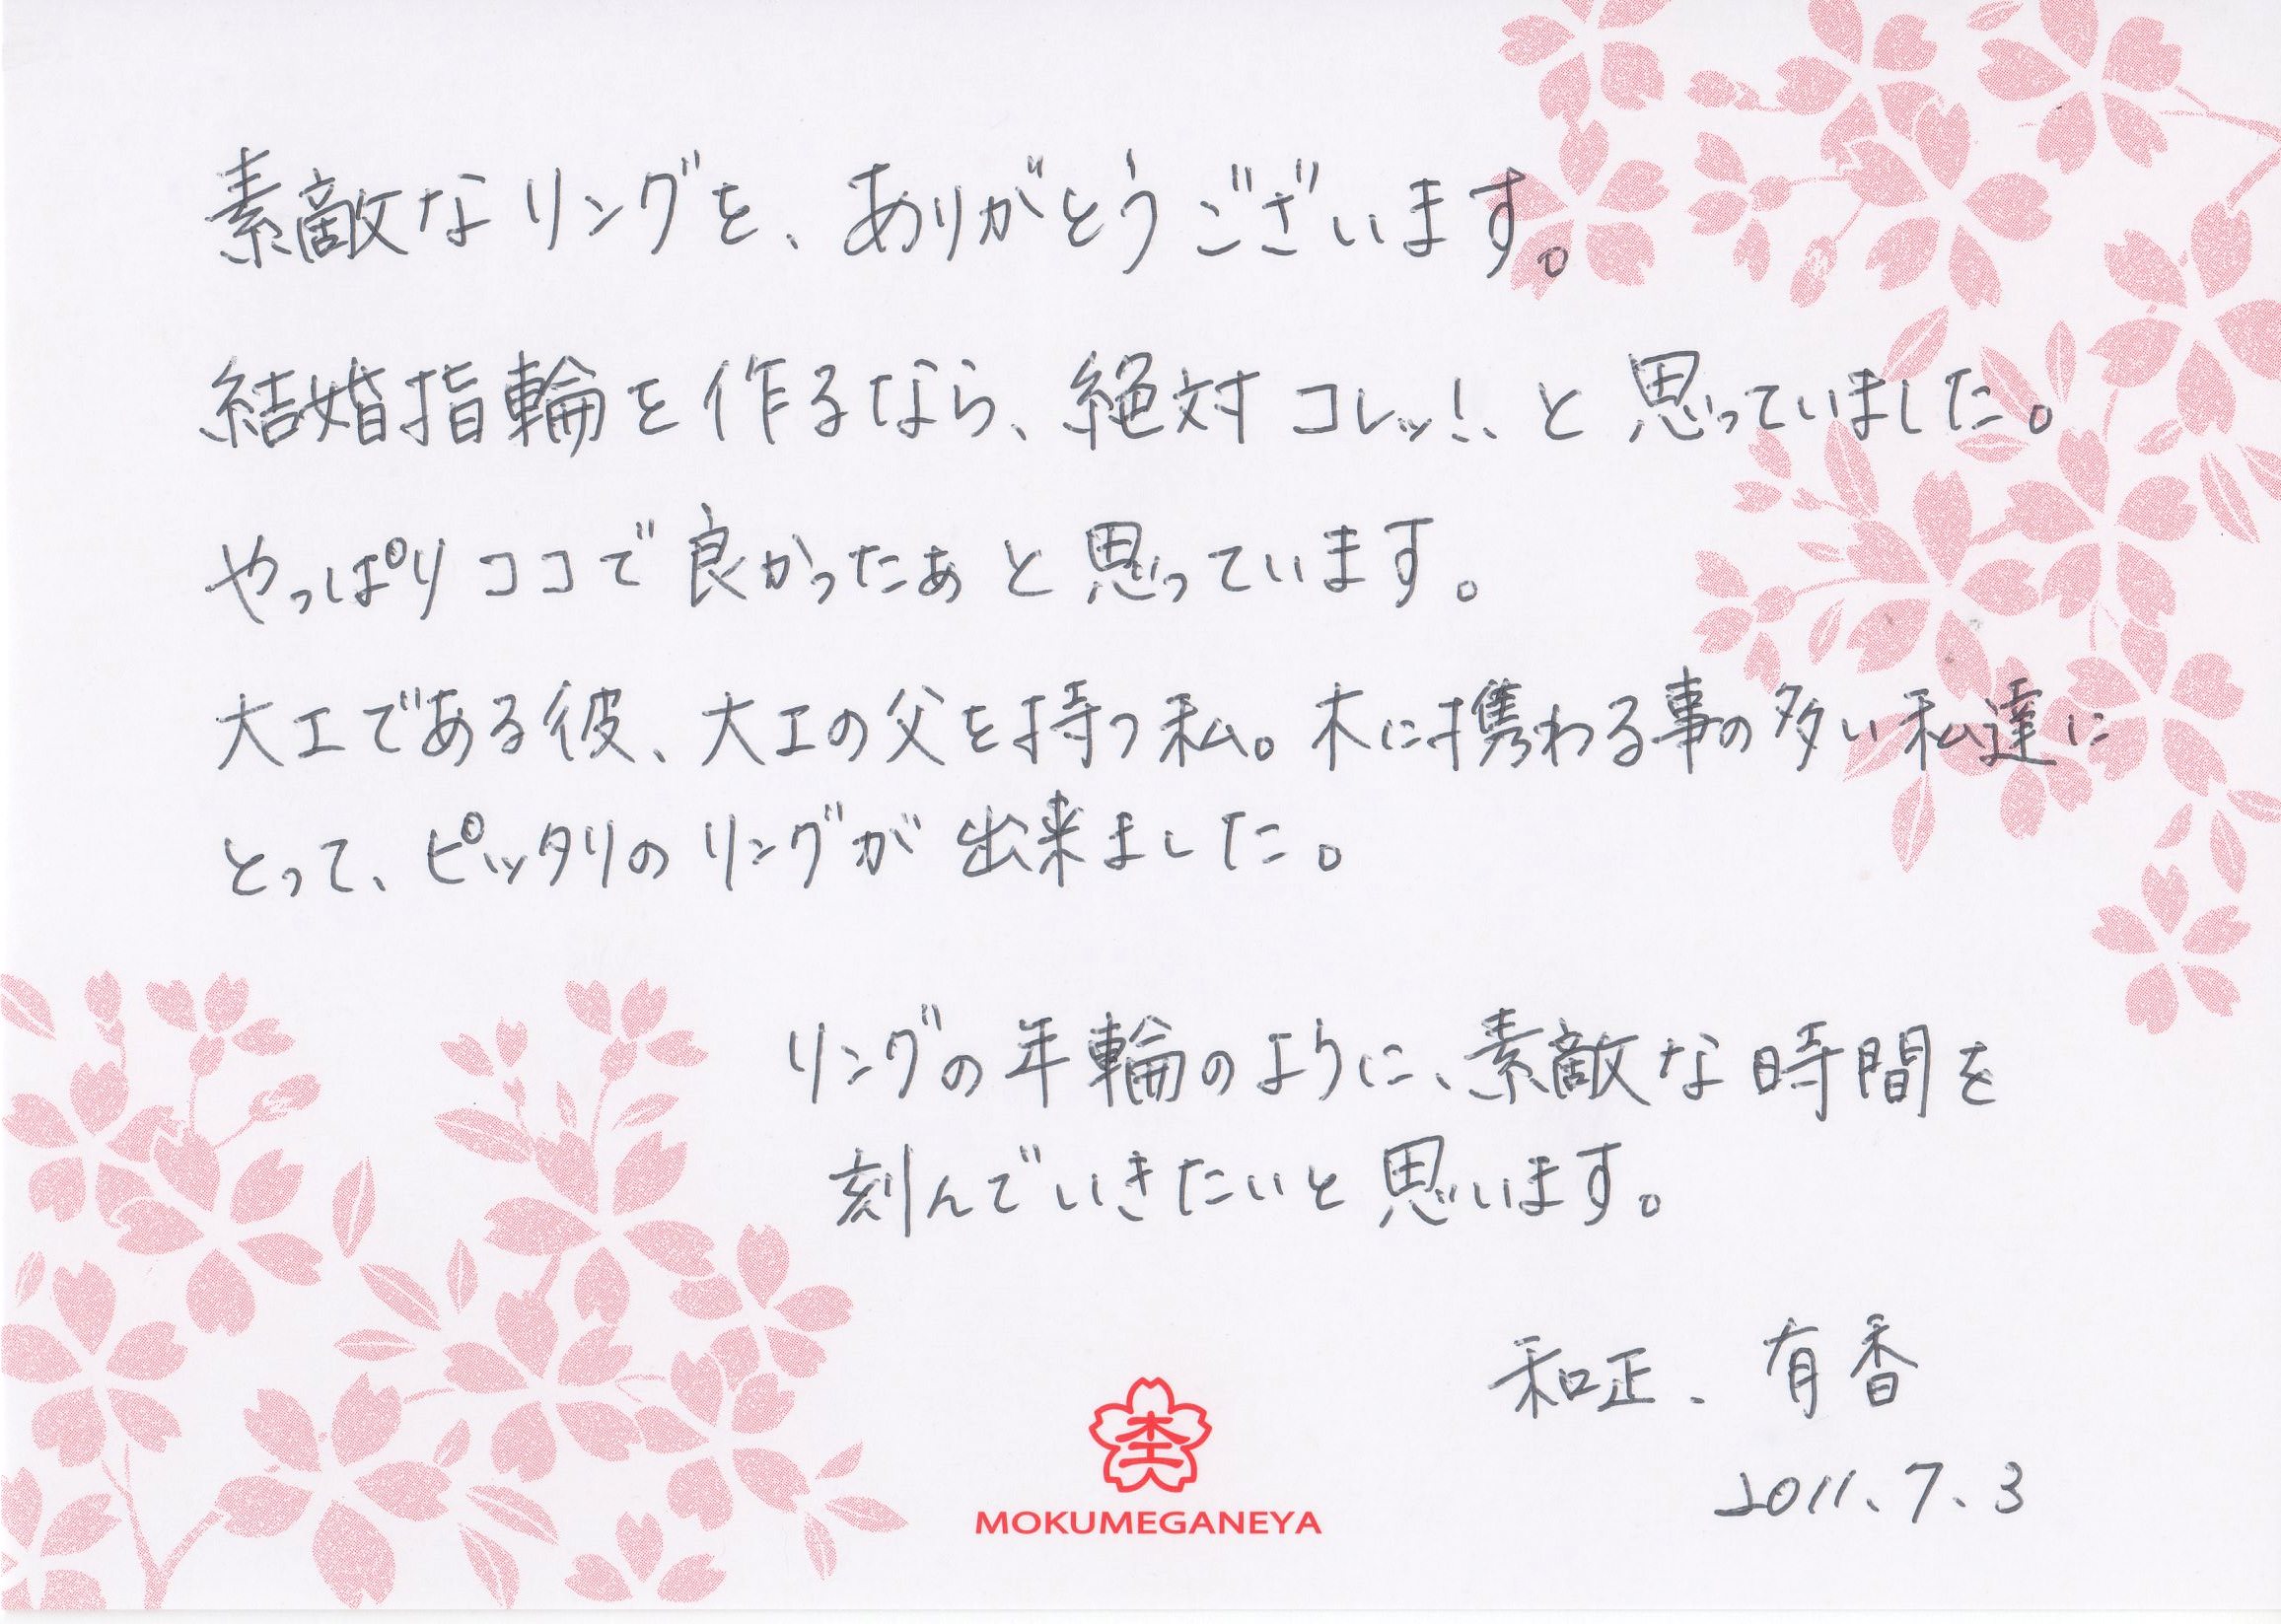 素敵なリングを、ありがとうございます。
結婚指輪を作るなら、絶対コレッ!、と思っていました。
やっぱりココで良かったぁと思っています。
大工である彼、大工の父を持つ私。木に携わる事の多い私達に
とって、ピッタリのリングが出来ました。
リングの年輪のように、素敵な時間を
刻んでいきたいと思います。
和正、有香
2011.7.3
MOKUMEGANEYA